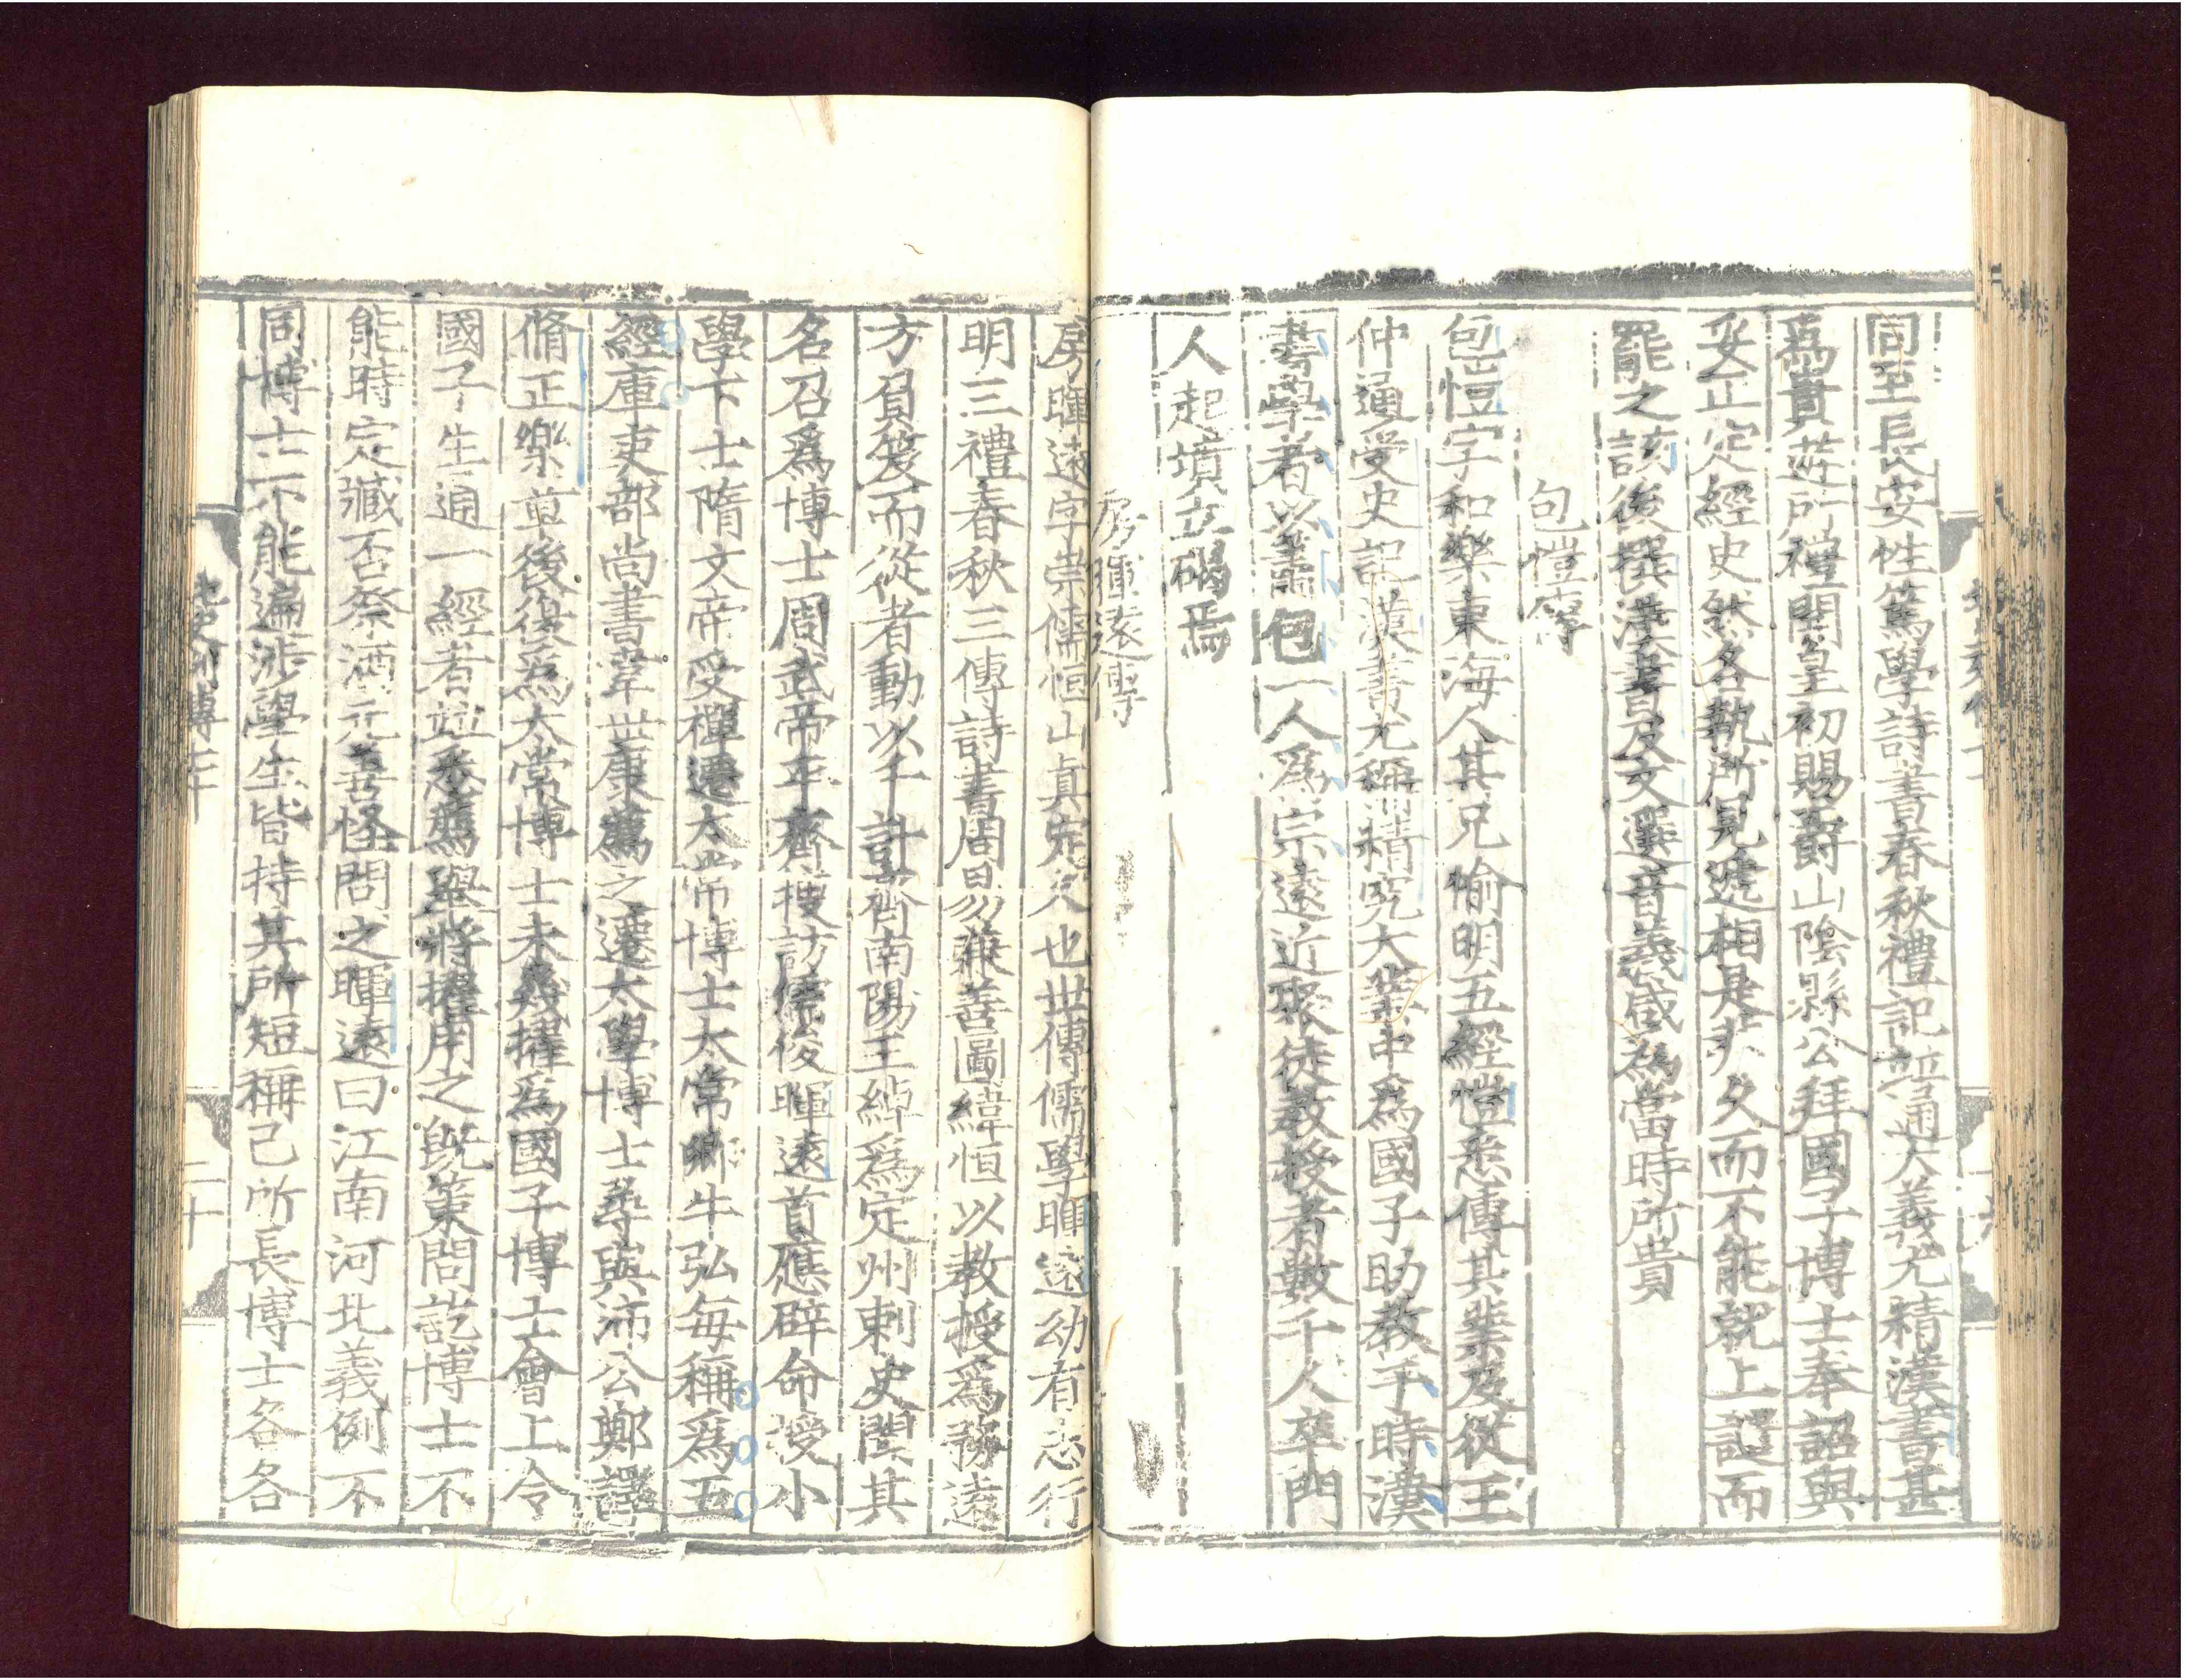 同至長安性篤學詩書春秋禮記並通大義尤精漢書甚
爲貴遊所禮開皇初賜爵山陰縣公拜國子博士奉詔與
妥正定經史然各執所見遞相是非久而不能就上譴而
罷之該後撰漢書及文選音義咸爲當時所貴
包愷傳
包愷字和樂東海人其兄愉明五經愷悉傳其業及從王
仲通受史記漢書尤稱精究大業中爲國子助教于時漢
書學者以蕭包二人爲宗遠近聚徒教授者數千人卒門
人起墳立碣焉
房暉遠傳
房暉遠字崇儒恒山真定人也世傳儒學暉遠幼有志行
明三禮春秋三傳詩書周易兼善圖緯恒以教授爲務遠
方負笈而從者動以千計齊南陽王綽爲定州刺史聞其
名召爲博士周武帝平齊搜訪儒俊暉遠首應辟命授小
學下士隋文帝受禪遷太常博士太常卿牛弘每稱爲五
經庫吏部尚書韋世康薦之遷太學博士尋與沛公鄭譯
脩正樂章後復爲太常博士未幾擢爲國子博士會上令
國子生通一經者並悉薦舉將擢用之旣策問訖博士不
能時定臧否祭酒元善怪問之暉遠曰江南河北義例不
同博士不能遍涉學生皆持其所短稱己所長博士各各
北史列傳七十
二十